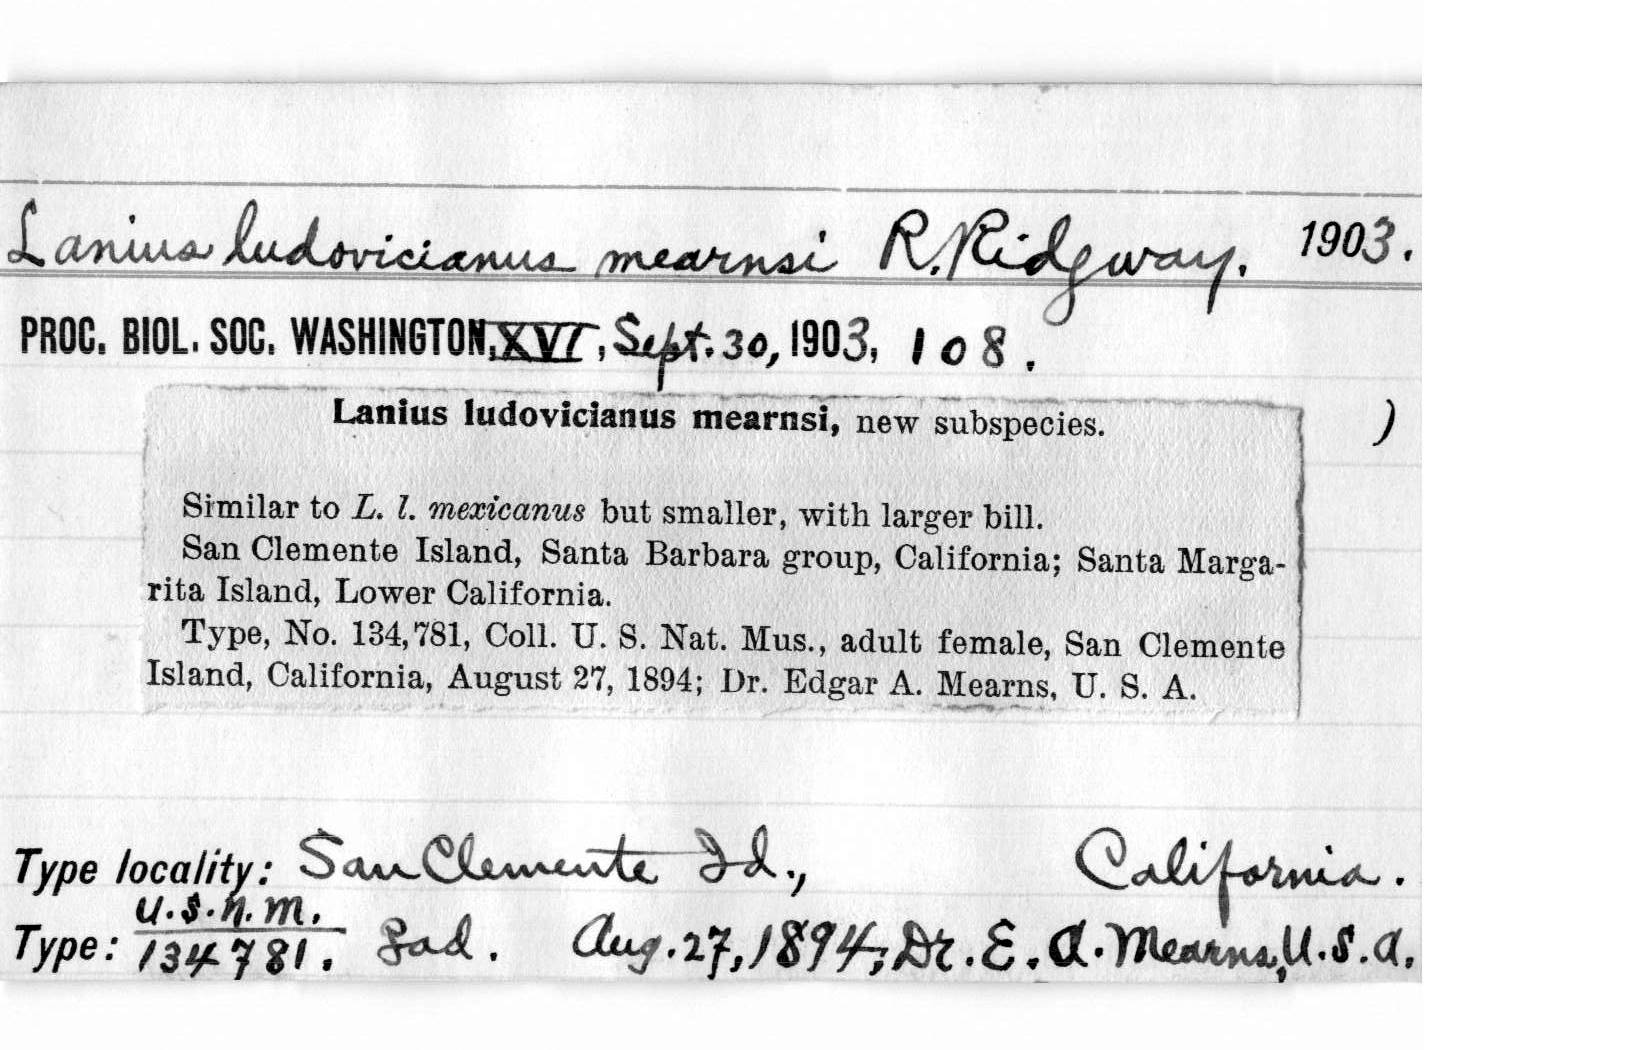 Lanius ludovicianus mearnsi R. Ridgway. 1903.
PROC. BIOL. SOC. WASHINGTON, XVI, Sept. 30, 1903, 108.
Lanius ludovicianus mearnsi, new subspecies. )
Similar to L. l. mexicanus but smaller, with larger bill.
San Clemente Island, Santa Barbara group, California; Santa Marga-
rita Island, Lower California.
Type, No. 134,781, Coll. U. S. Nat. Mus., adult female, San Clemente
Island, California, August 27, 1894; Dr. Edgar A. Mearns, U. S. A.
Type locality: San Clemente Id., California.
U.S.N.M.
Type: 134781. ad. Aug. 27, 1894; Dr. E. A. Mearns, U.S.A.